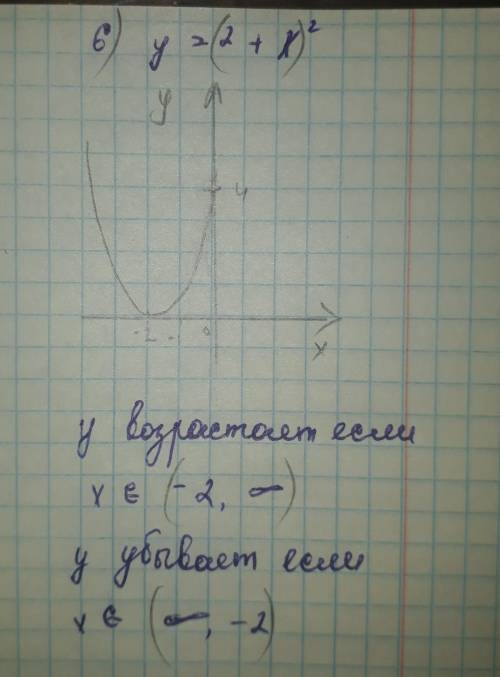 б) y = (2 + x)²
y
4
-2 -1 0
x
y возрастает если
x ∈ (-2, ∞)
y убывает если
x ∈ (∞, -2)